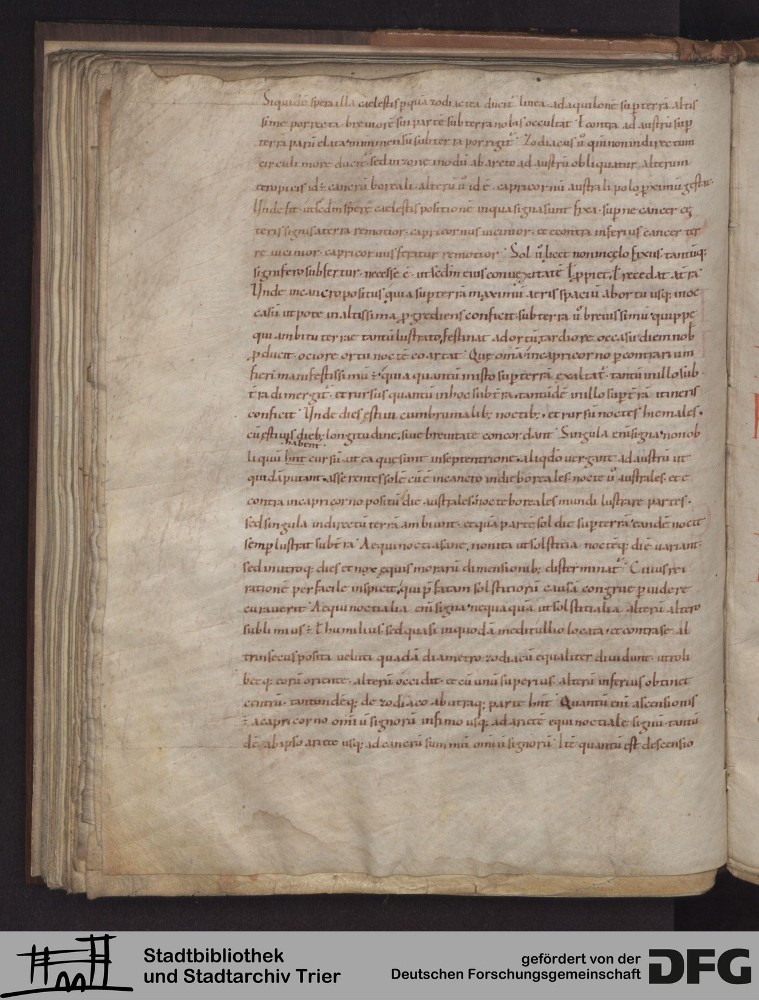 Siquidē spera illa caelestis p quā zodiaciea ducit᷑ linea · ad aquilone sup terrā altis
sime porrecta · breuiorē sui partē sub terra nobis occultat · ł contra ad austrū sup
terrā parū eleuata · inmensū subter ea porrigit᷑ · Zodiacus ū quī non in directum
circuli more ducit᷑ · sed in zone modū ab arcto ad austrū obliquatur · alterum
tropicis id÷ cancrū boreali · alterū ū id ē capricornū australi polo ꝓximū gestat
Unde fit · ut scdm sperę caelestis positionē in qua signa sunt fixa · superne cancer cę
teris signis a terra remotior · capricornus uicinior · et econtra inferius cancer ter
re uicinior · capricornus feratur remotior · Sol ū licet non in cęlo fixus · tantūq;
signifero subfertur · necesse ē · ut scdm eius conuexitatē ł ppiet · ł recedat a t̄ra
Unde in cancro positus · quia sup terrā maximū a t̄ris spaciū ab ortu usq; in oc
casū · ut pote in altissima ꝓgrediens conficit · sub terra ū breuissimū · quippe
qui ambitu terrae tantū lustrato, festinat ad ortū · tardiore occasu diem nob
ꝓducit · ociore ortu noctē coartat · Quę om̄a in capricorno p contrarium
fieri manifestissimū ÷ · quia quantū in isto sup terrā exaltat᷑ · tantū in illo sub
t̄ra dimergit᷑ · et rursus quantū in hoc sub t̄ra · tantūdē in illo sup t̄rā itineris
conficit · Unde dies ęstiui cum brumalib; noctib; · et rursū noctes hiemales ·
cū ęstiuis dieb; longitudine, siue breuitate concordant · Singula enī signa non ob
habent
liquū hn̄t cursū · ut ea quę sunt in septentrione · aliqdo uergant ad austrū ut
quidā putant · asserentes solē cū ē in cancro in die boreales · nocte ū australes · et e
contra in capricorno positū die australes · nocte boreales mundi lustrare partes ·
sed singula in directū terrā ambiunt · et qua parte sol die sup terrā · eandē nocte
semp lustrat sub t̄ra · Aequinoctia sane, non ita ut solstitia noctēq; diē uariant ·
sed in utroq; dies et nox ęquis morarū dimensionib; disterminat᷑ · Cuius rei
rationē per facile inspiciet, qui p̄fatam solstitiorū causā congrue puidere
curauerit · Aequinoctialia enī signa · nequaquā ut solstitialia · alterū altero
sublimius ÷ ł humilius · sed quasi in quodā meditullio locata · et contra se al
trinsecus posita · ueluti quadā diametro · zodiacū equaliter diuidunt · utroli
bet q; eorū oriente · alterū occidit · et cū unū superius · alterū inferius obtinet
centrū · tantundēq; de zodiaco ab utraq; parte hn̄t · Quantū enī ascensionis
÷ a capricorno om̄iū signorū infimo usq; ad arietē equinoctiale signū · tantū
dē · ab ipso ariete usq; ad cancrū summū om̄iū signorū · Itē quantū est descensio
Stadtbibliothek
und Stadtarchiv Trier
gefördert von der
Deutschen Forschungsgemeinschaft
DFG